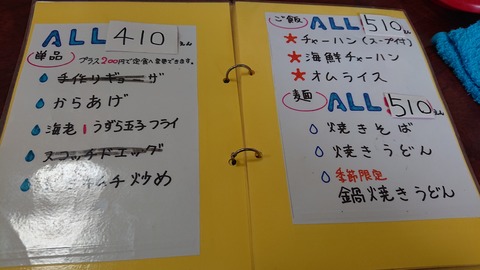 ALL 410えん
単品 プラス200円で定食へ変更できます。
手作りギョーザ
からあげ
海老 うずら玉子フライ
スコッチドエッグ
チ炒め
ご飯 ALL 510えん
チャーハン(スープ付)
海鮮チャーハン
オムライス
麺 ALL 510えん
焼きそば
焼きうどん
季節限定
鍋焼きうどん